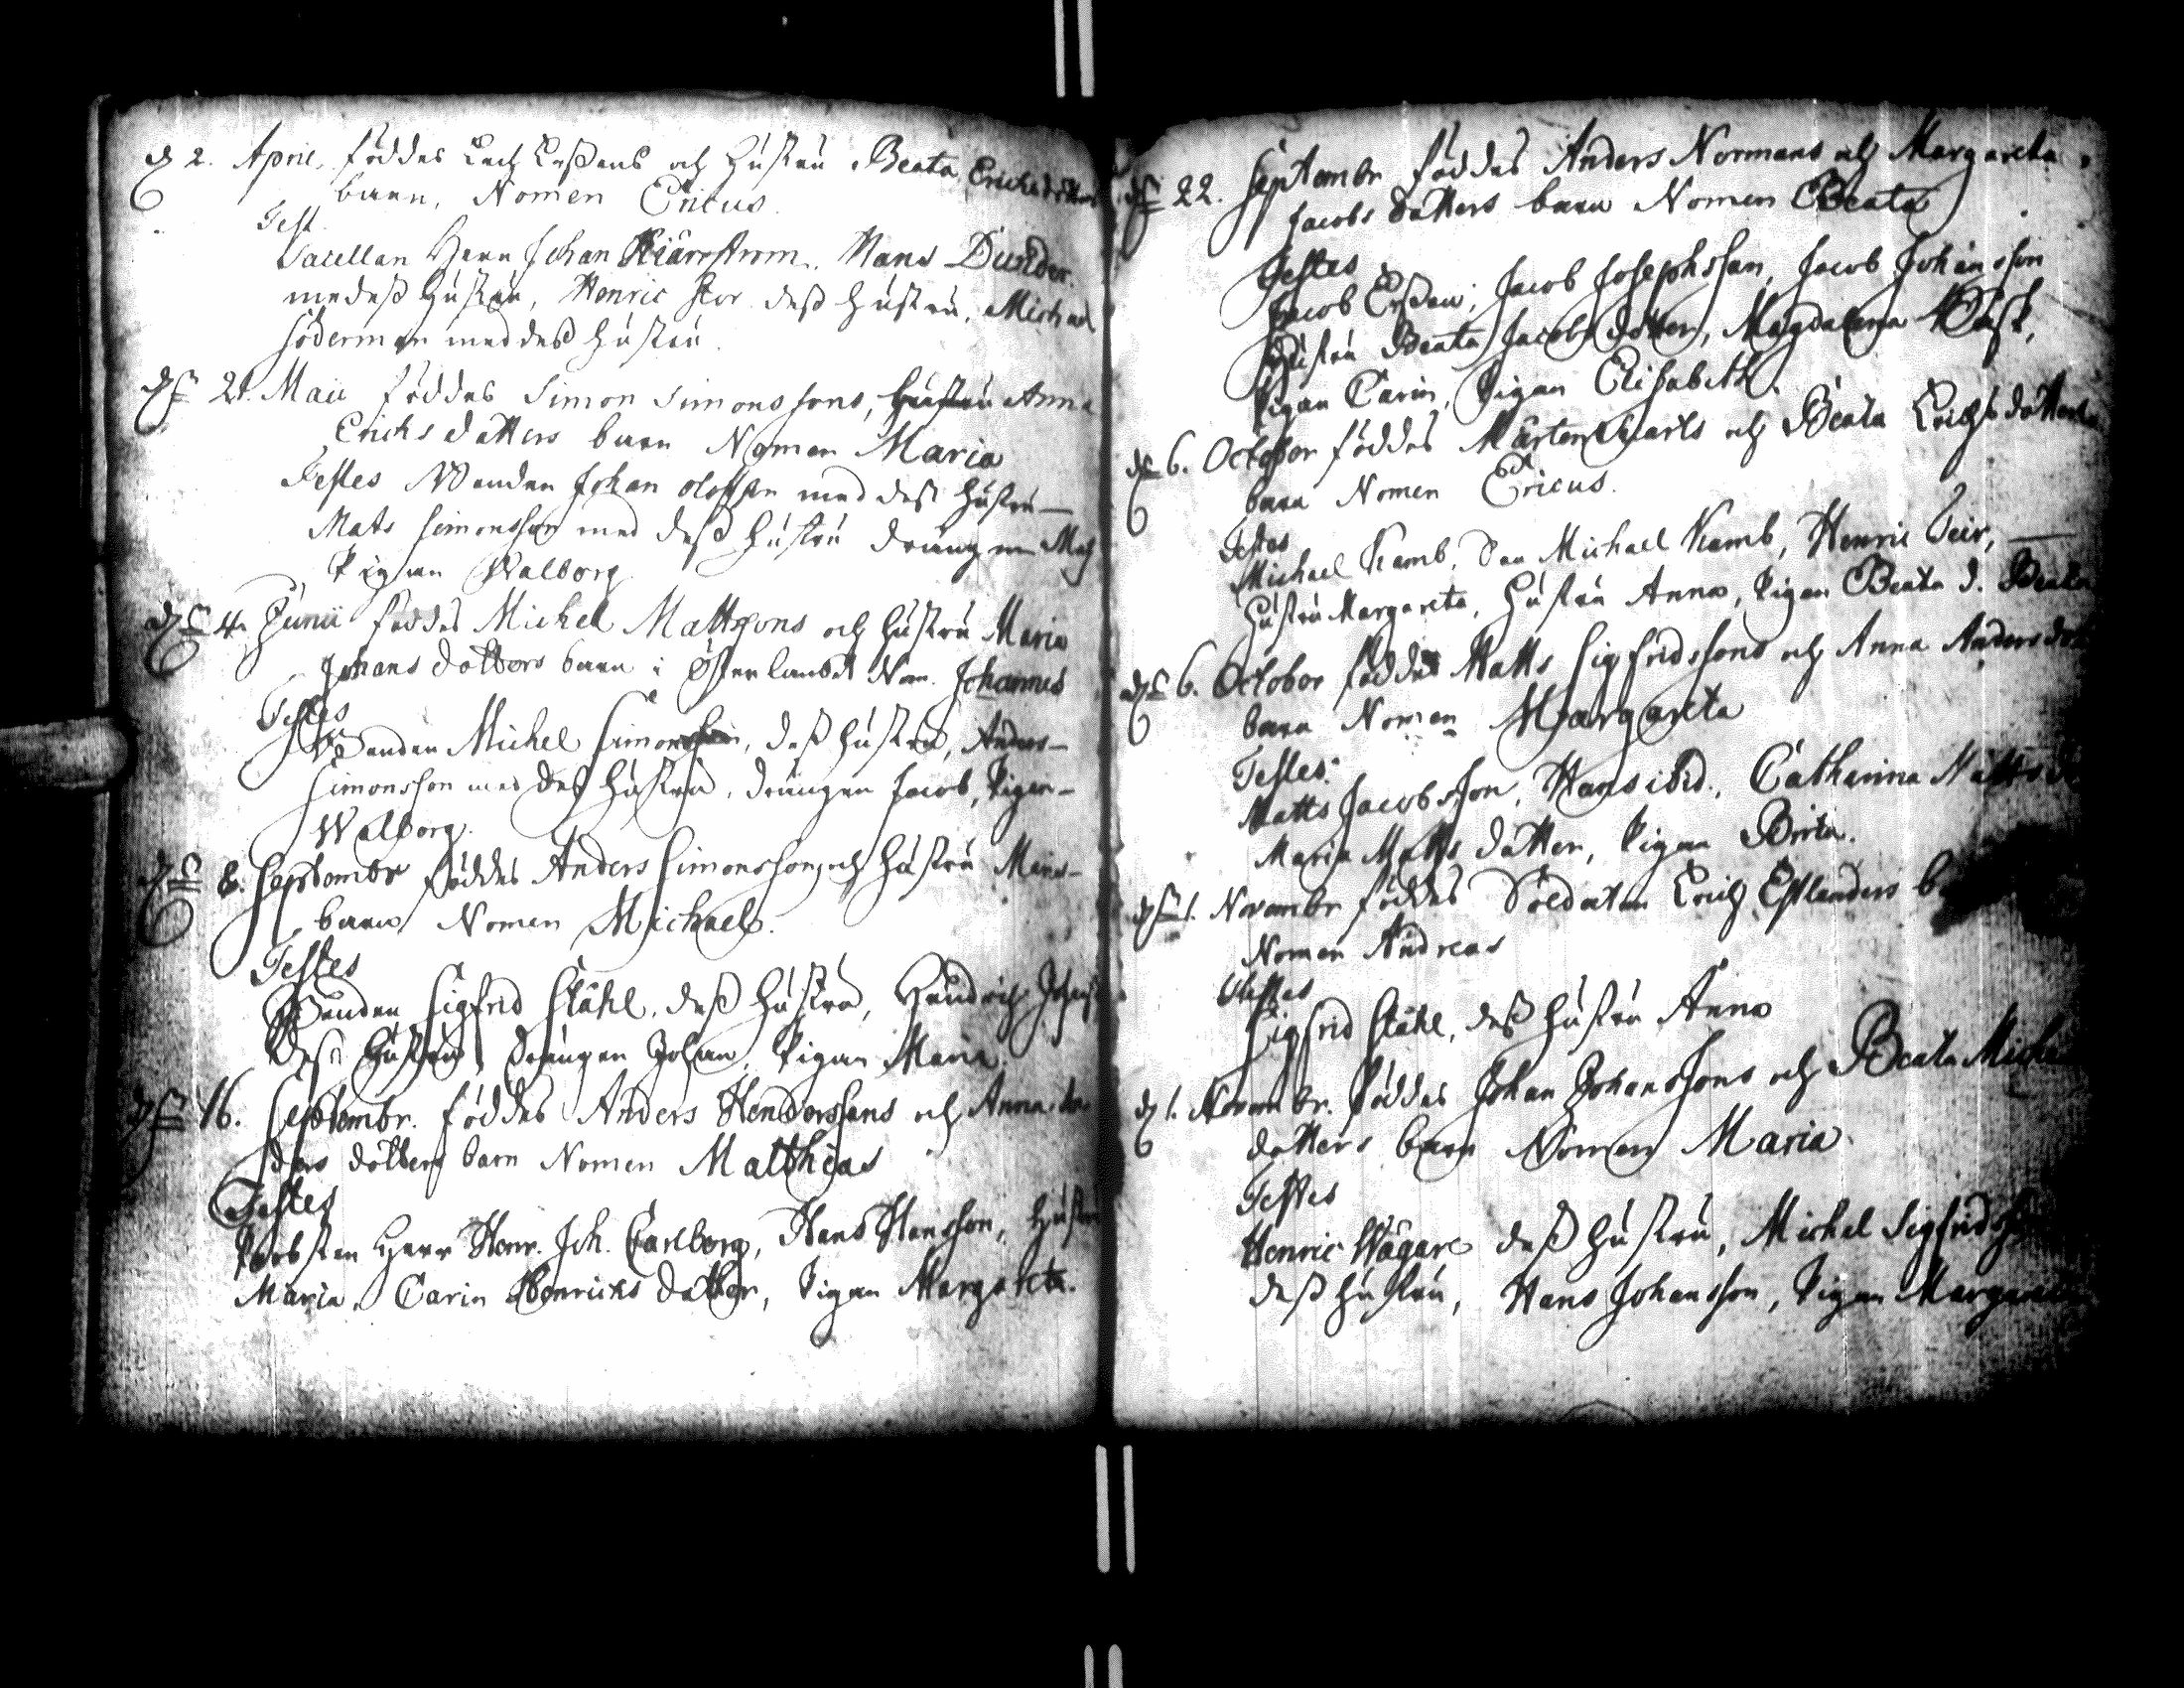 d 2. April. föddes Erich Erssens och Hustru Beata Erichsdotters
barn, Nomen Ericus.
Test.
Sacellan Herr Johan Kiärrström. Hans Dunder.
med dess Hustru, Henric Stor dess Hustru, Michael
Söderman med dess Hustru.
d 21. Maii föddes Simon Simonssons, Hustru Anna
Erichsdotters barn Nomen Maria
Testes Bonden Johan Olofsson med dess Hustru
Mats Simonsson med dess Hustru drängen Mats
Pigan Walborg
d 4. Junii föddes Michel Mattssons och Hustru Maria
Johansdotters barn i Österlandet Nom. Johannes
Testes
Bonden Michel Simonsson, dess Hustru, Anders
Simonsson med dess Hustru, drängen Jacob, Pigan
Walborg.
d 8. Septembr föddes Anders Simonssons och Hustru Maria
barn Nomen Michael.
Testes
Bonden Sigfrid Ståhl, dess Hustru, Hendrich Johans
dess Hustru, drängen Johan, Pigan Maria
d 16. Septembr. föddes Anders Henderssons och Anna An
ders dotters barn Nomen Matthias
Testes
Probsten Herr Henr. Joh. Carlborg, Hans Hansson, Hustru
Maria, Carin Henrichs dotter, Pigan Margareta.
d 22. Septembr föddes Anders Normans och Margareta
Jacobs dotters barn Nomen Beata
Testes
Jacob Ersson, Jacob Josephsson, Jacob Johansson
Hustru Beata Jacobsdotter, Magdalena
Pigan Carin, Pigan Elisabeth.
d 6. October föddes Mårten och Beata Erichs dotters
barn Nomen Ericus.
Testes
Michael Kamb, Michael Kamb, Henric Teir,
Hustru Margareta, Hustru Anna, Pigan Beata d. Beata
d 6. October föddes Matts Sigfridssons och Anna Anders dott
barn Nomen Margareta
Testes:
Matts Jacobsson, Hans ibid., Catharina Matts d
Maria Matts dotter, Pigan Brita.
d 1. Novembr föddes Soldaten Erich Estlanders b
Nomen Andreas
Testes
Sigfrid Ståhl, dess Hustru Anna
d 1. Novembr. föddes Johan Johanssons och Beata Miche
dotters barn Nomen Maria.
Testes
Henric Wägare dess Hustru, Michel Sigfrids
dess Hustru, Hans Johansson, Pigan Margare